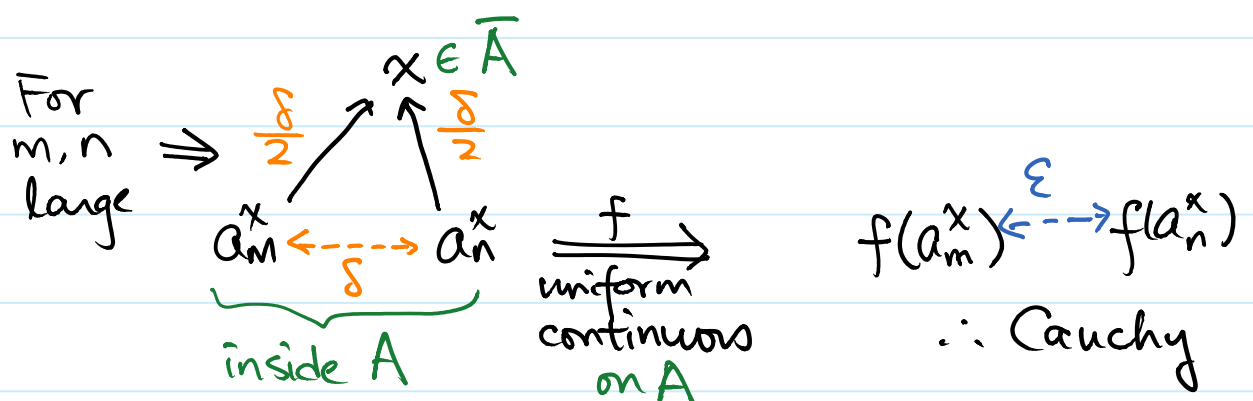 x ∈ A̅
For m, n large ⇒ δ/2 δ/2
a_m^x ⟷ a_n^x
δ
inside A
f
uniform
continuous
on A
ε
f(a_m^x) ⟷ f(a_n^x)
∴ Cauchy